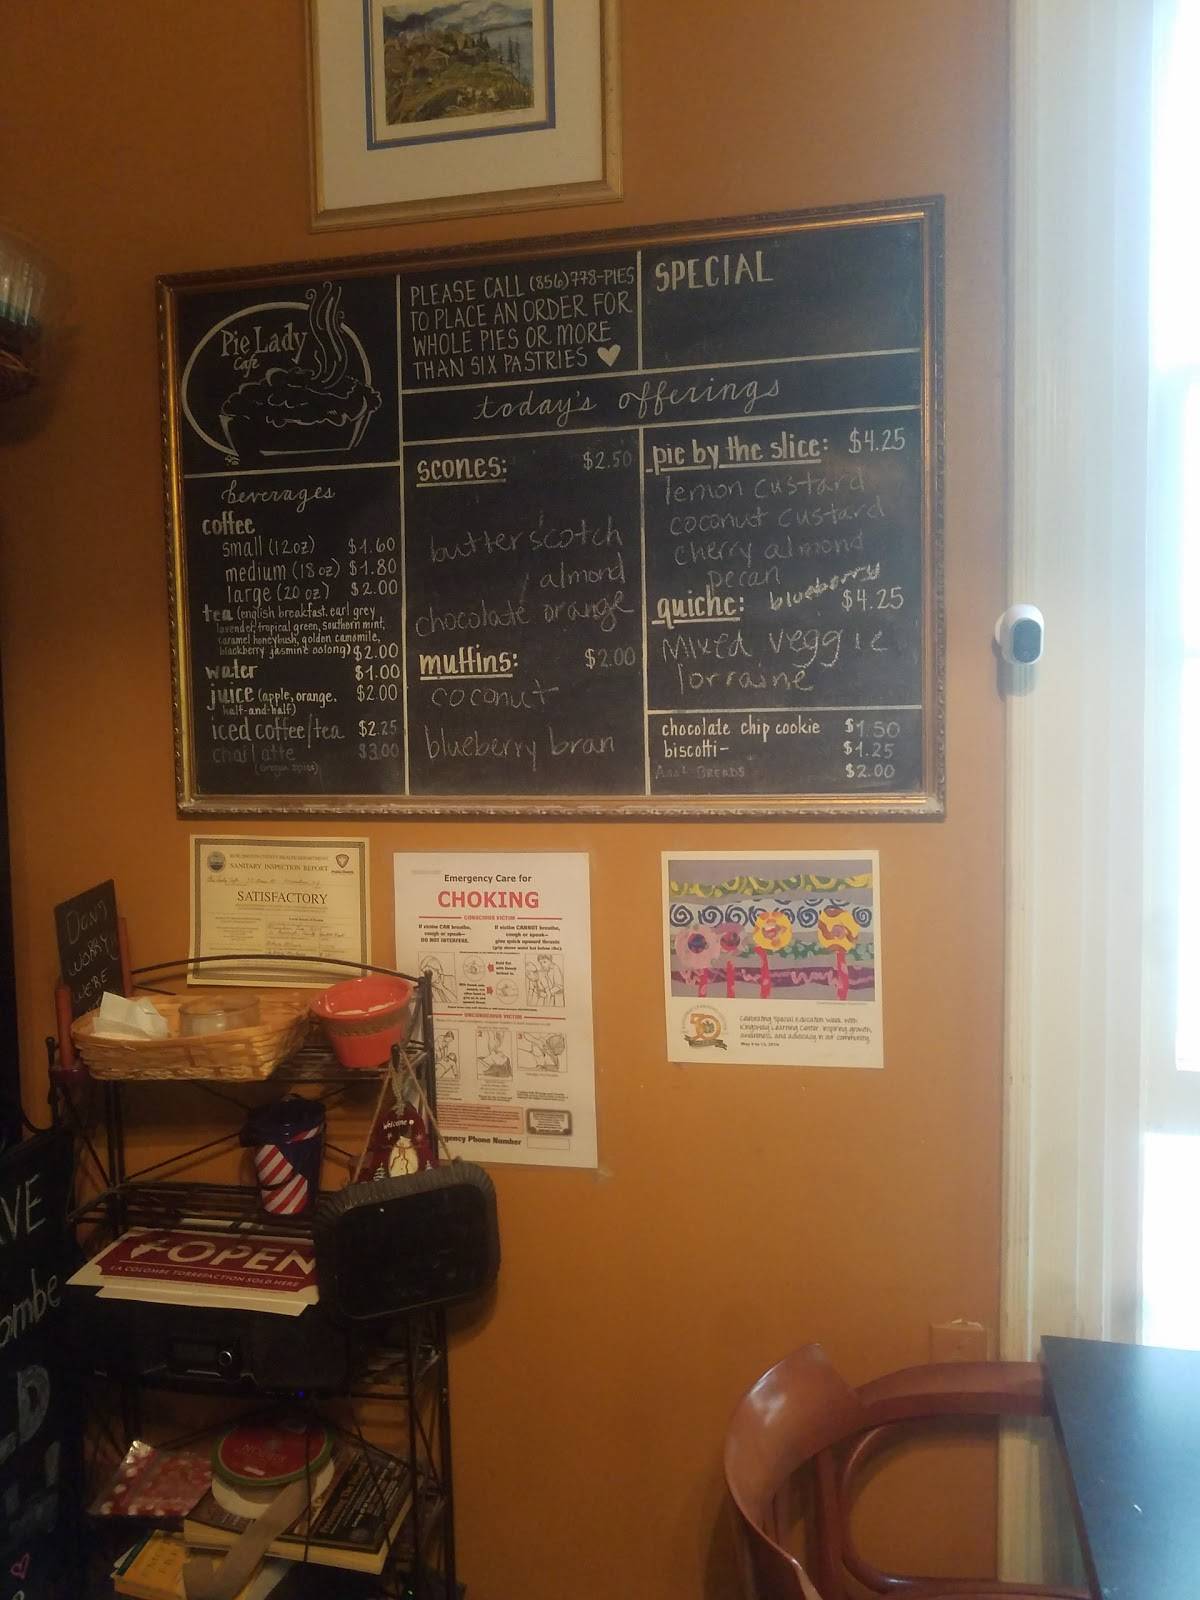 Pie Lady
Cafe
PLEASE CALL (856)778-PIES
TO PLACE AN ORDER FOR
WHOLE PIES OR MORE
THAN SIX PASTRIES ♥
SPECIAL
today's offerings
beverages
coffee
small (12oz) $1.60
medium (18oz) $1.80
large (20 oz) $2.00
tea (english breakfast, earl grey
lavender, tropical green, southern mint,
caramel honeybush, golden camomile,
blackberry jasmine oolong) $2.00
water $1.00
juice (apple, orange, $2.00
half-and-half)
iced coffee/tea $2.25
chai latte $3.00
(oregon spice)
scones: $2.50
butterscotch
almond
chocolate orange
muffins: $2.00
coconut
blueberry bran
pie by the slice: $4.25
lemon custard
coconut custard
cherry almond
pecan blueberry
quiche: $4.25
Mixed veggie
lorraine
chocolate chip cookie $1.50
biscotti- $1.25
BREADS $2.00
BURLINGTON COUNTY HEALTH DEPARTMENT
SANITARY INSPECTION REPORT
SATISFACTORY
Emergency Care for
CHOKING
CONSCIOUS VICTIM
If victim CAN breathe,
cough or speak—
DO NOT INTERFERE.
If victim CANNOT breathe,
cough or speak—
give quick upward thrusts
(grip above waist but below ribs)
UNCONSCIOUS VICTIM
2
3
Emergency Phone Number
30
Celebrating Special Education Week with
Kingsway Learning Center inspiring growth,
awareness, and advocacy in our community.
DON'T
WORRY
WE'RE
Welcome
OPEN
LA COLOMBE TORREFACTION SOLD HERE